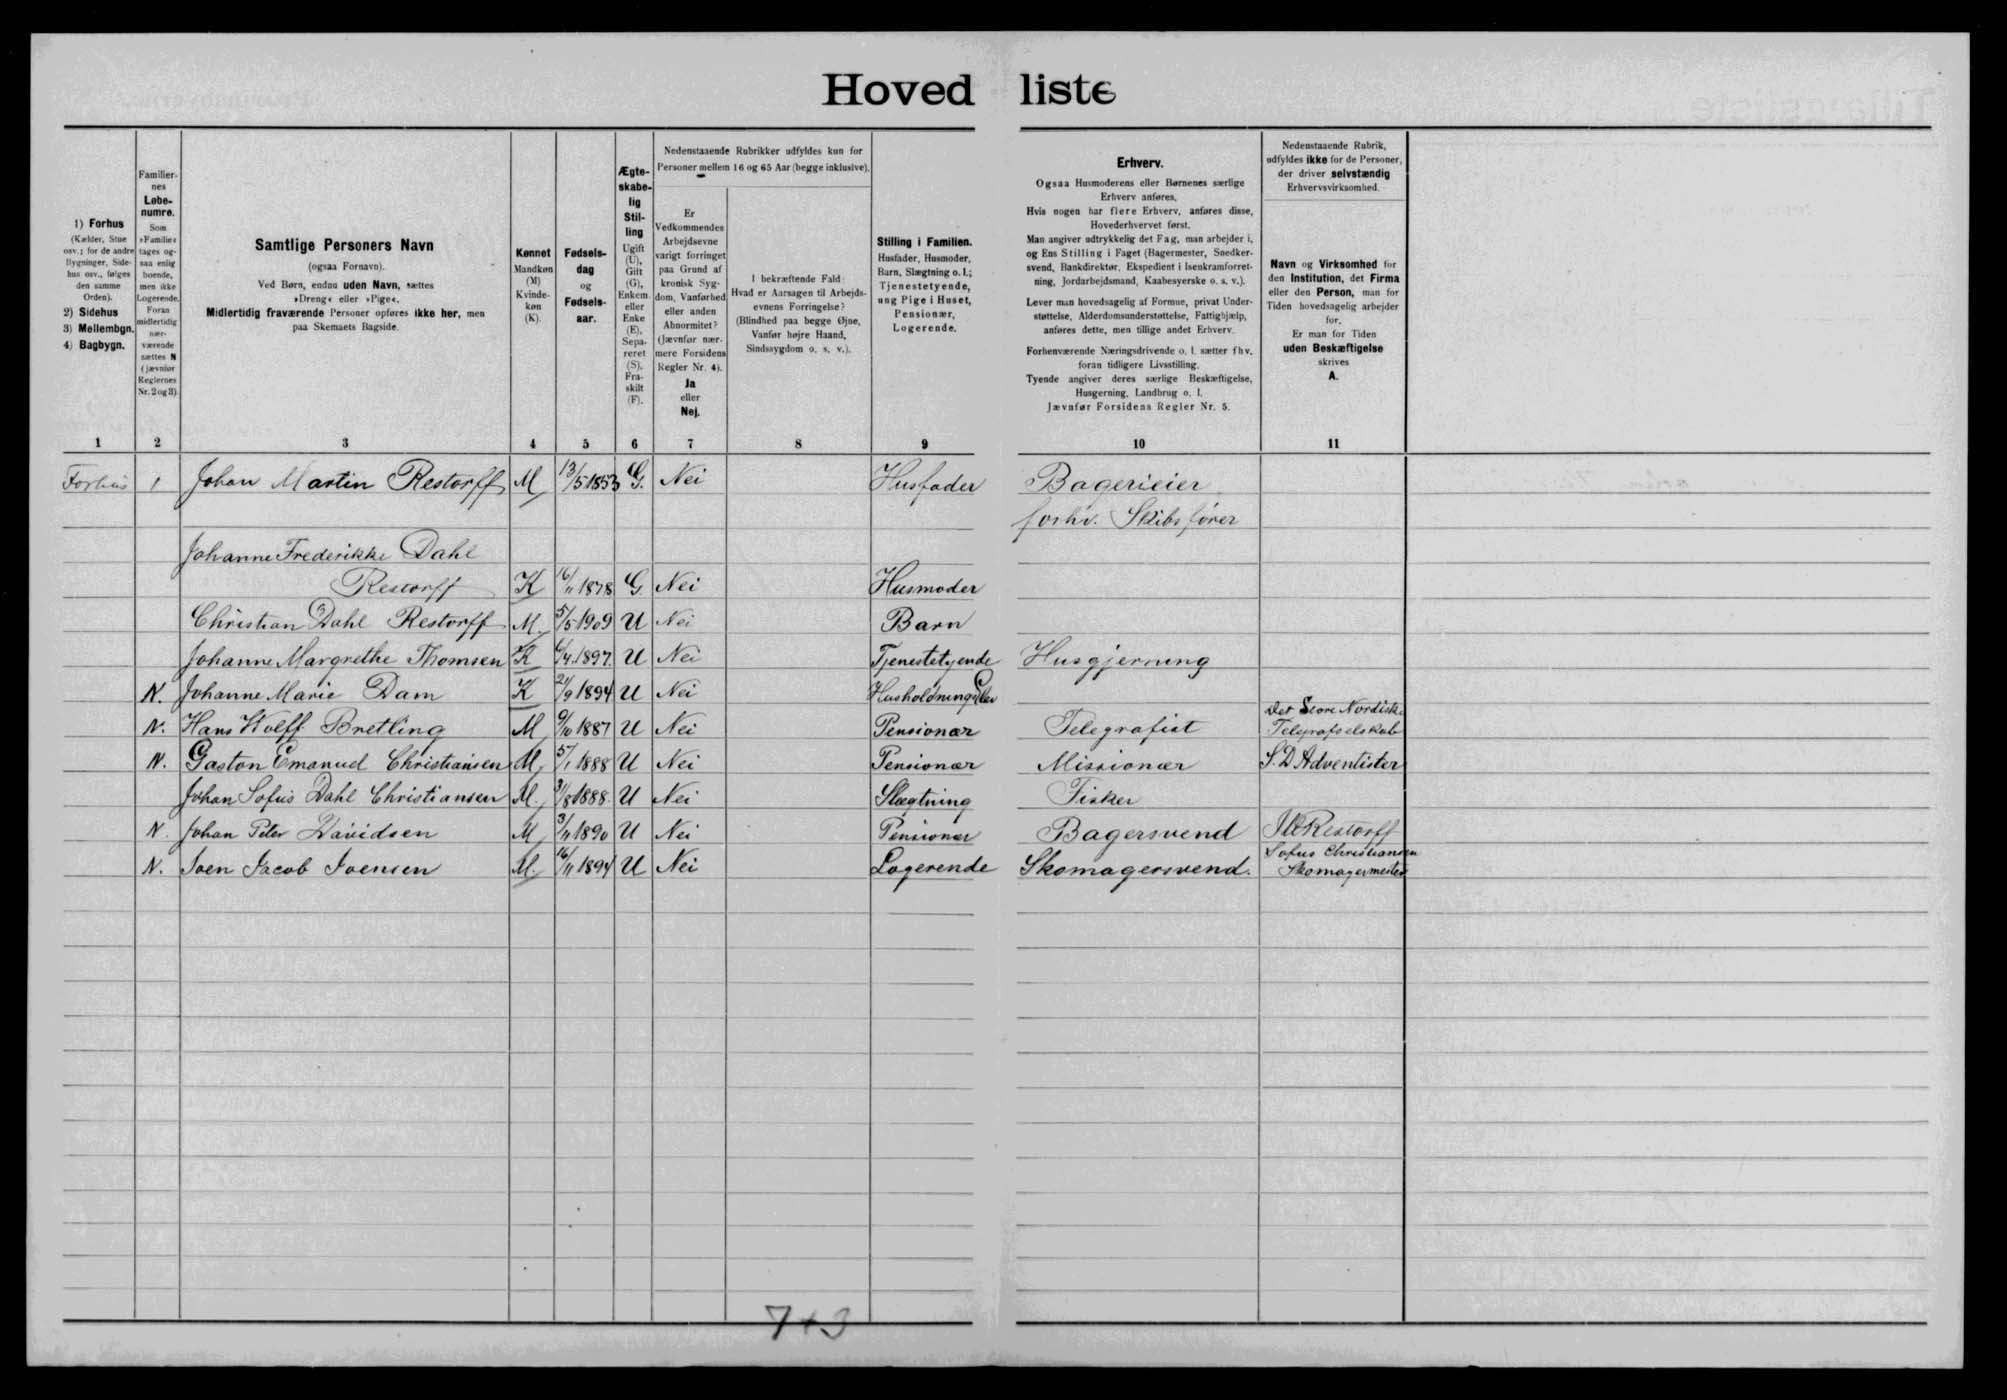 Hovedliste
1) Forhus
(Kælder, Stue
osv.; for de andre
Bygninger, Side-
hus osv., følges
den samme
Orden).
2) Sidehus
3) Mellembgn.
4) Bagbygn.
Familier-
nes
Løbe-
numre.
Som
»Familie«
tages og-
saa enlig
boende,
men ikke
Logerende.
Foran
midlertidig
nær-
værende
sættes N
(jævnfør
Reglernes
Nr. 2 og 3)
Samtlige Personers Navn
(ogsaa Fornavn).
Ved Børn, endnu uden Navn, sættes
»Dreng« eller »Pige«.
Midlertidig fraværende Personer opføres ikke her, men
paa Skemaets Bagside.
Kønnet
Mandkøn
(M)
Kvinde-
køn
(K).
Fødsels-
dag
og
Fødsels-
aar.
Ægte-
skabe-
lig
Stil-
ling
Ugift
(U),
Gift
(G),
Enkem.
eller
Enke
(E),
Sepa-
reret
(S),
Fra-
skilt
(F).
Nedenstaaende Rubrikker udfyldes kun for
Personer mellem 16 og 65 Aar (begge inklusive).
Er
Vedkommendes
Arbejdsevne
varigt forringet
paa Grund af
kronisk Syg-
dom, Vanførhed
eller anden
Abnormitet?
(Jævnfør nær-
mere Forsidens
Regler Nr. 4).
Ja
eller
Nej.
I bekræftende Fald:
Hvad er Aarsagen til Arbejds-
evnens Forringelse?
(Blindhed paa begge Øjne,
Vanfør højre Haand,
Sindssygdom o. s. v.).
Stilling i Familien.
Husfader, Husmoder,
Barn, Slægtning o. l.;
Tjenestetyende,
ung Pige i Huset,
Pensionær,
Logerende.
Erhverv.
Ogsaa Husmoderens eller Børnenes særlige
Erhverv anføres.
Hvis nogen har flere Erhverv, anføres disse,
Hovederhvervet først.
Man angiver udtrykkelig det Fag, man arbejder i,
og Ens Stilling i Faget (Bagermester, Snedker-
svend, Bankdirektør, Ekspedient i Isenkramforret-
ning, Jordarbejdsmand, Kaabesyerske o. s. v.).
Lever man hovedsagelig af Formue, privat Under-
støttelse, Alderdomsunderstøttelse, Fattighjælp,
anføres dette, men tillige andet Erhverv.
Forhenværende Næringsdrivende o. l. sætter fhv.
foran tidligere Livsstilling.
Tyende angiver deres særlige Beskæftigelse,
Husgerning, Landbrug o. l.
Jævnfør Forsidens Regler Nr. 5.
Nedenstaaende Rubrik,
udfyldes ikke for de Personer,
der driver selvstændig
Erhvervsvirksomhed.
Navn og Virksomhed for
den Institution, det Firma
eller den Person, man for
Tiden hovedsagelig arbejder
for.
Er man for Tiden
uden Beskæftigelse
skrives
A.
1 2 3 4 5 6 7 8 9 10 11
Forhus 1 Johan Martin Restorff M 13/5 1853 G. Nei Husfader Bagerieier
forhv. Skibsfører
Johanne Frederikke Dahl
Restorff K 16/11 1878 G. Nei Husmoder
Christian Dahl Restorff M. 5/5 1909 U Nei Barn
Johanne Margrethe Thomsen K 6/4 1897. U Nei Tjenestetyende Husgjerning
N. Johanne Marie Dam K 21/9 1894 U Nei Husholdningselev
N. Hans Wolff Bretling M 9/10 1887 U Nei Pensionær Telegrafist Det Store Nordiske
Telegrafselskab
N. Gaston Emanuel Christiansen M, 5/1 1888 U Nei Pensionær Missionær S. D Adventister
Johan Sofus Dahl Christiansen M. 3/8 1888. U Nei Slægtning Fisker
N. Johan Peter Davidsen M 3/11 1890 U Nei Pensionær Bagersvend JMRestorff
N. Joen Jacob Joensen M. 16/11 1894 U Nei Logerende Skomagersvend. Sofus Christiansen
Skomagermester
7+3